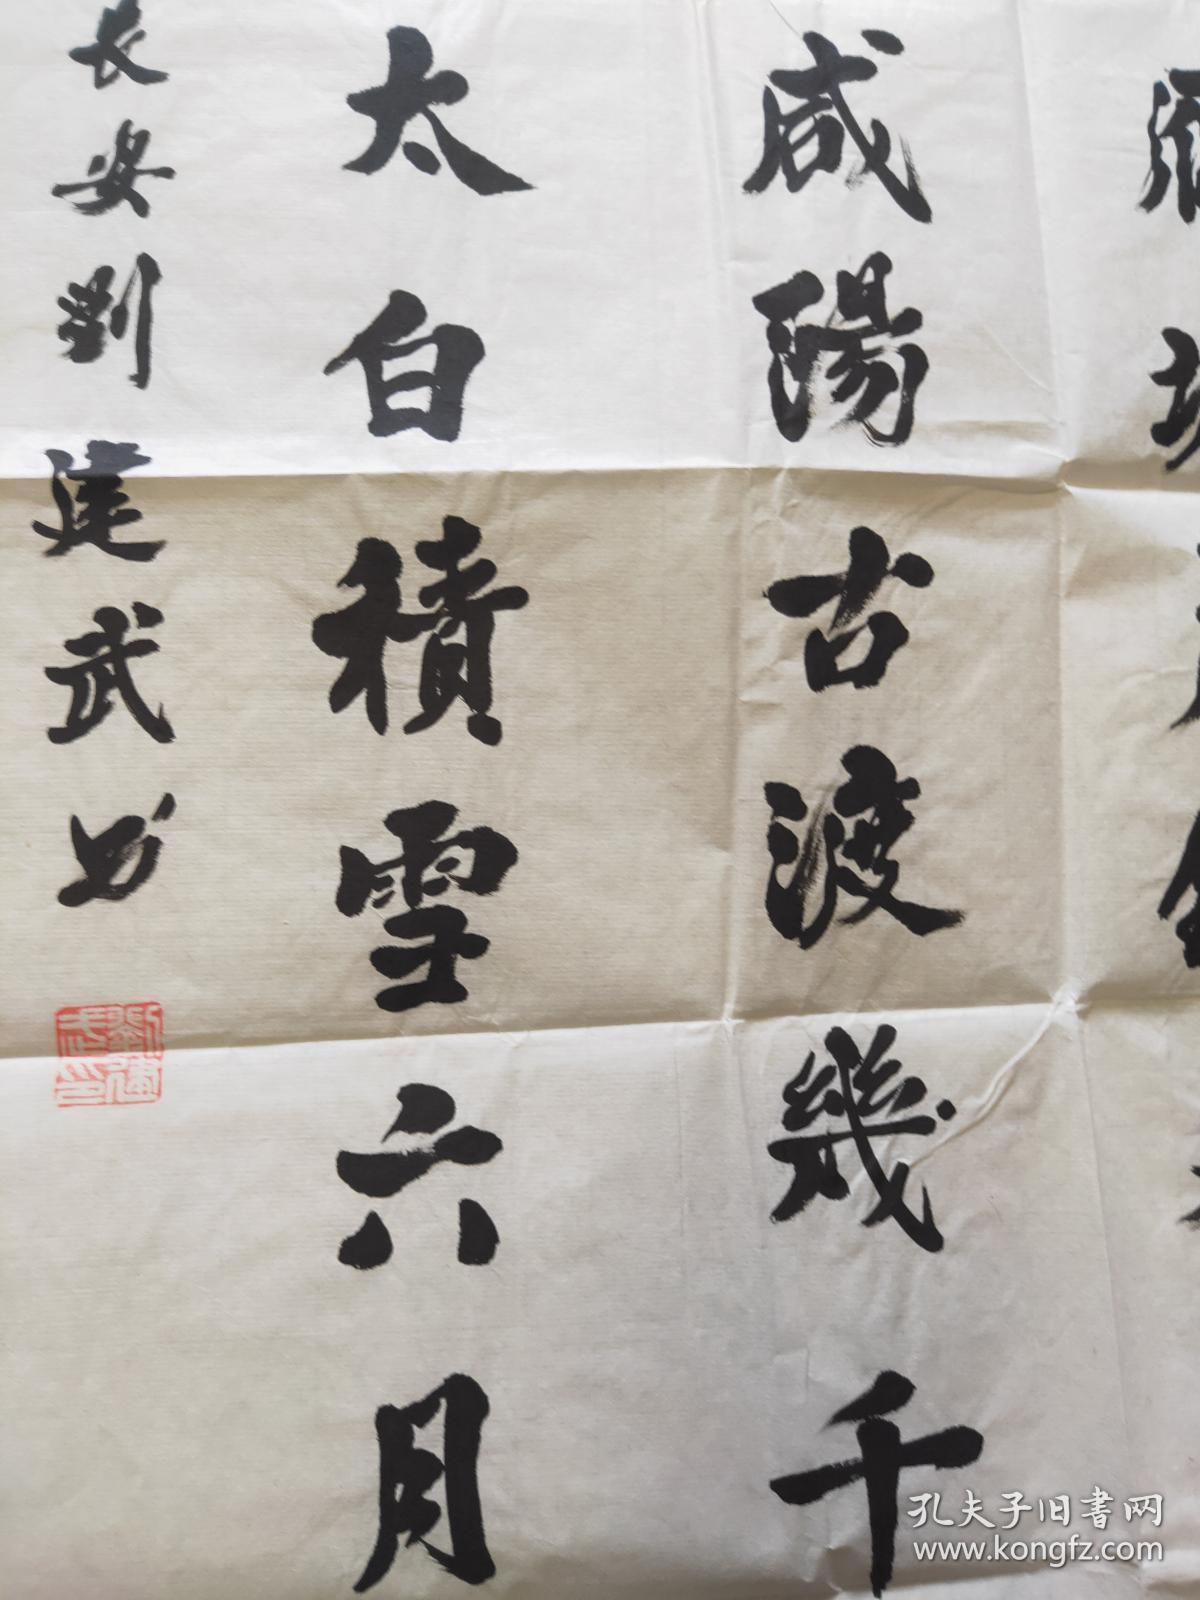 咸陽古渡幾千
太白積雪六月
長安劉建武書
劉建武印
孔夫子旧書网
www.kongfz.com